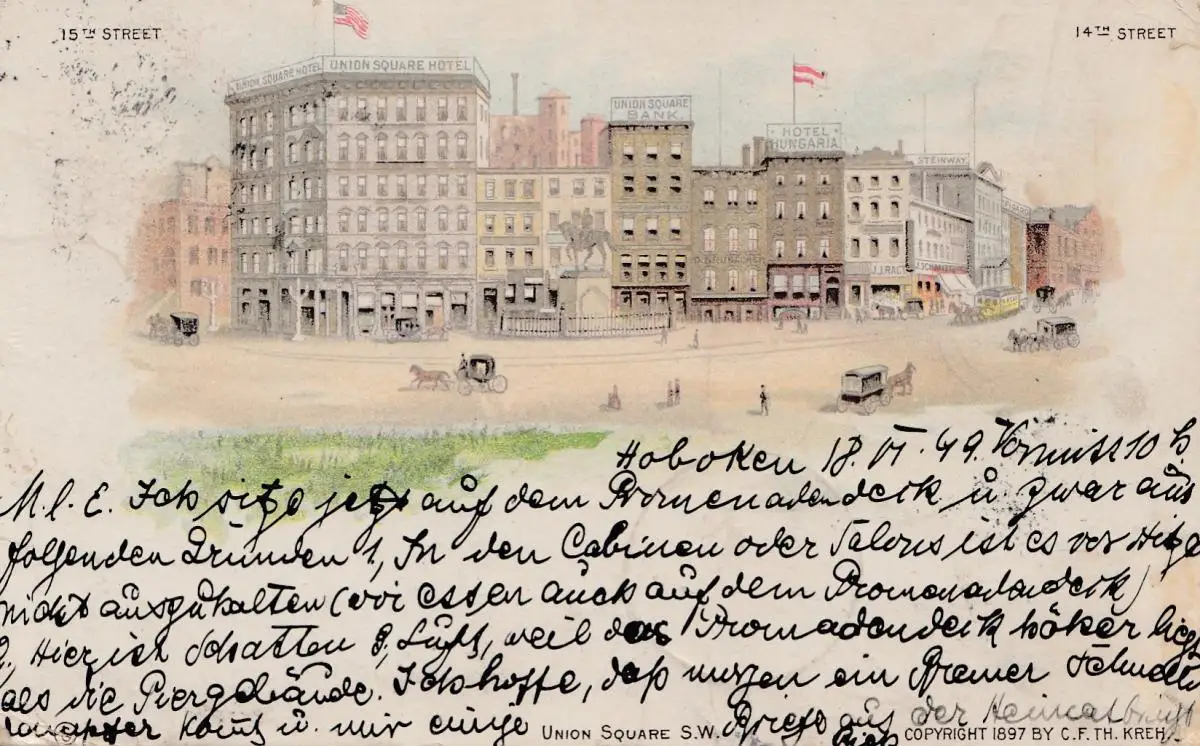 15TH STREET
14TH STREET
UNION SQUARE HOTEL
UNION SQUARE HOTEL
UNION SQUARE
BANK.
HOTEL
HUNGARIA
STEINWAY
Hoboken 18. VI. 99. Vormitt 10 h
M. l. E. Ich sitze jetzt auf dem Promenadendeck u. zwar aus
folgenden Gründen 1, In den Cabinen oder Salons ist es vor Hitze
nicht auszuhalten (wir essen auch auf dem Promenadendeck)
2, Hier ist Schatten 3, Luft, weil das Promadendeck höher liegt
als die Piergebäude. Ich hoffe, daß morgen ein Bremer Schnell
dampfer kommt u. mir einige Briefe aus der Heimat bringt
UNION SQUARE S.W.
COPYRIGHT 1897 BY C. F. TH. KREH.